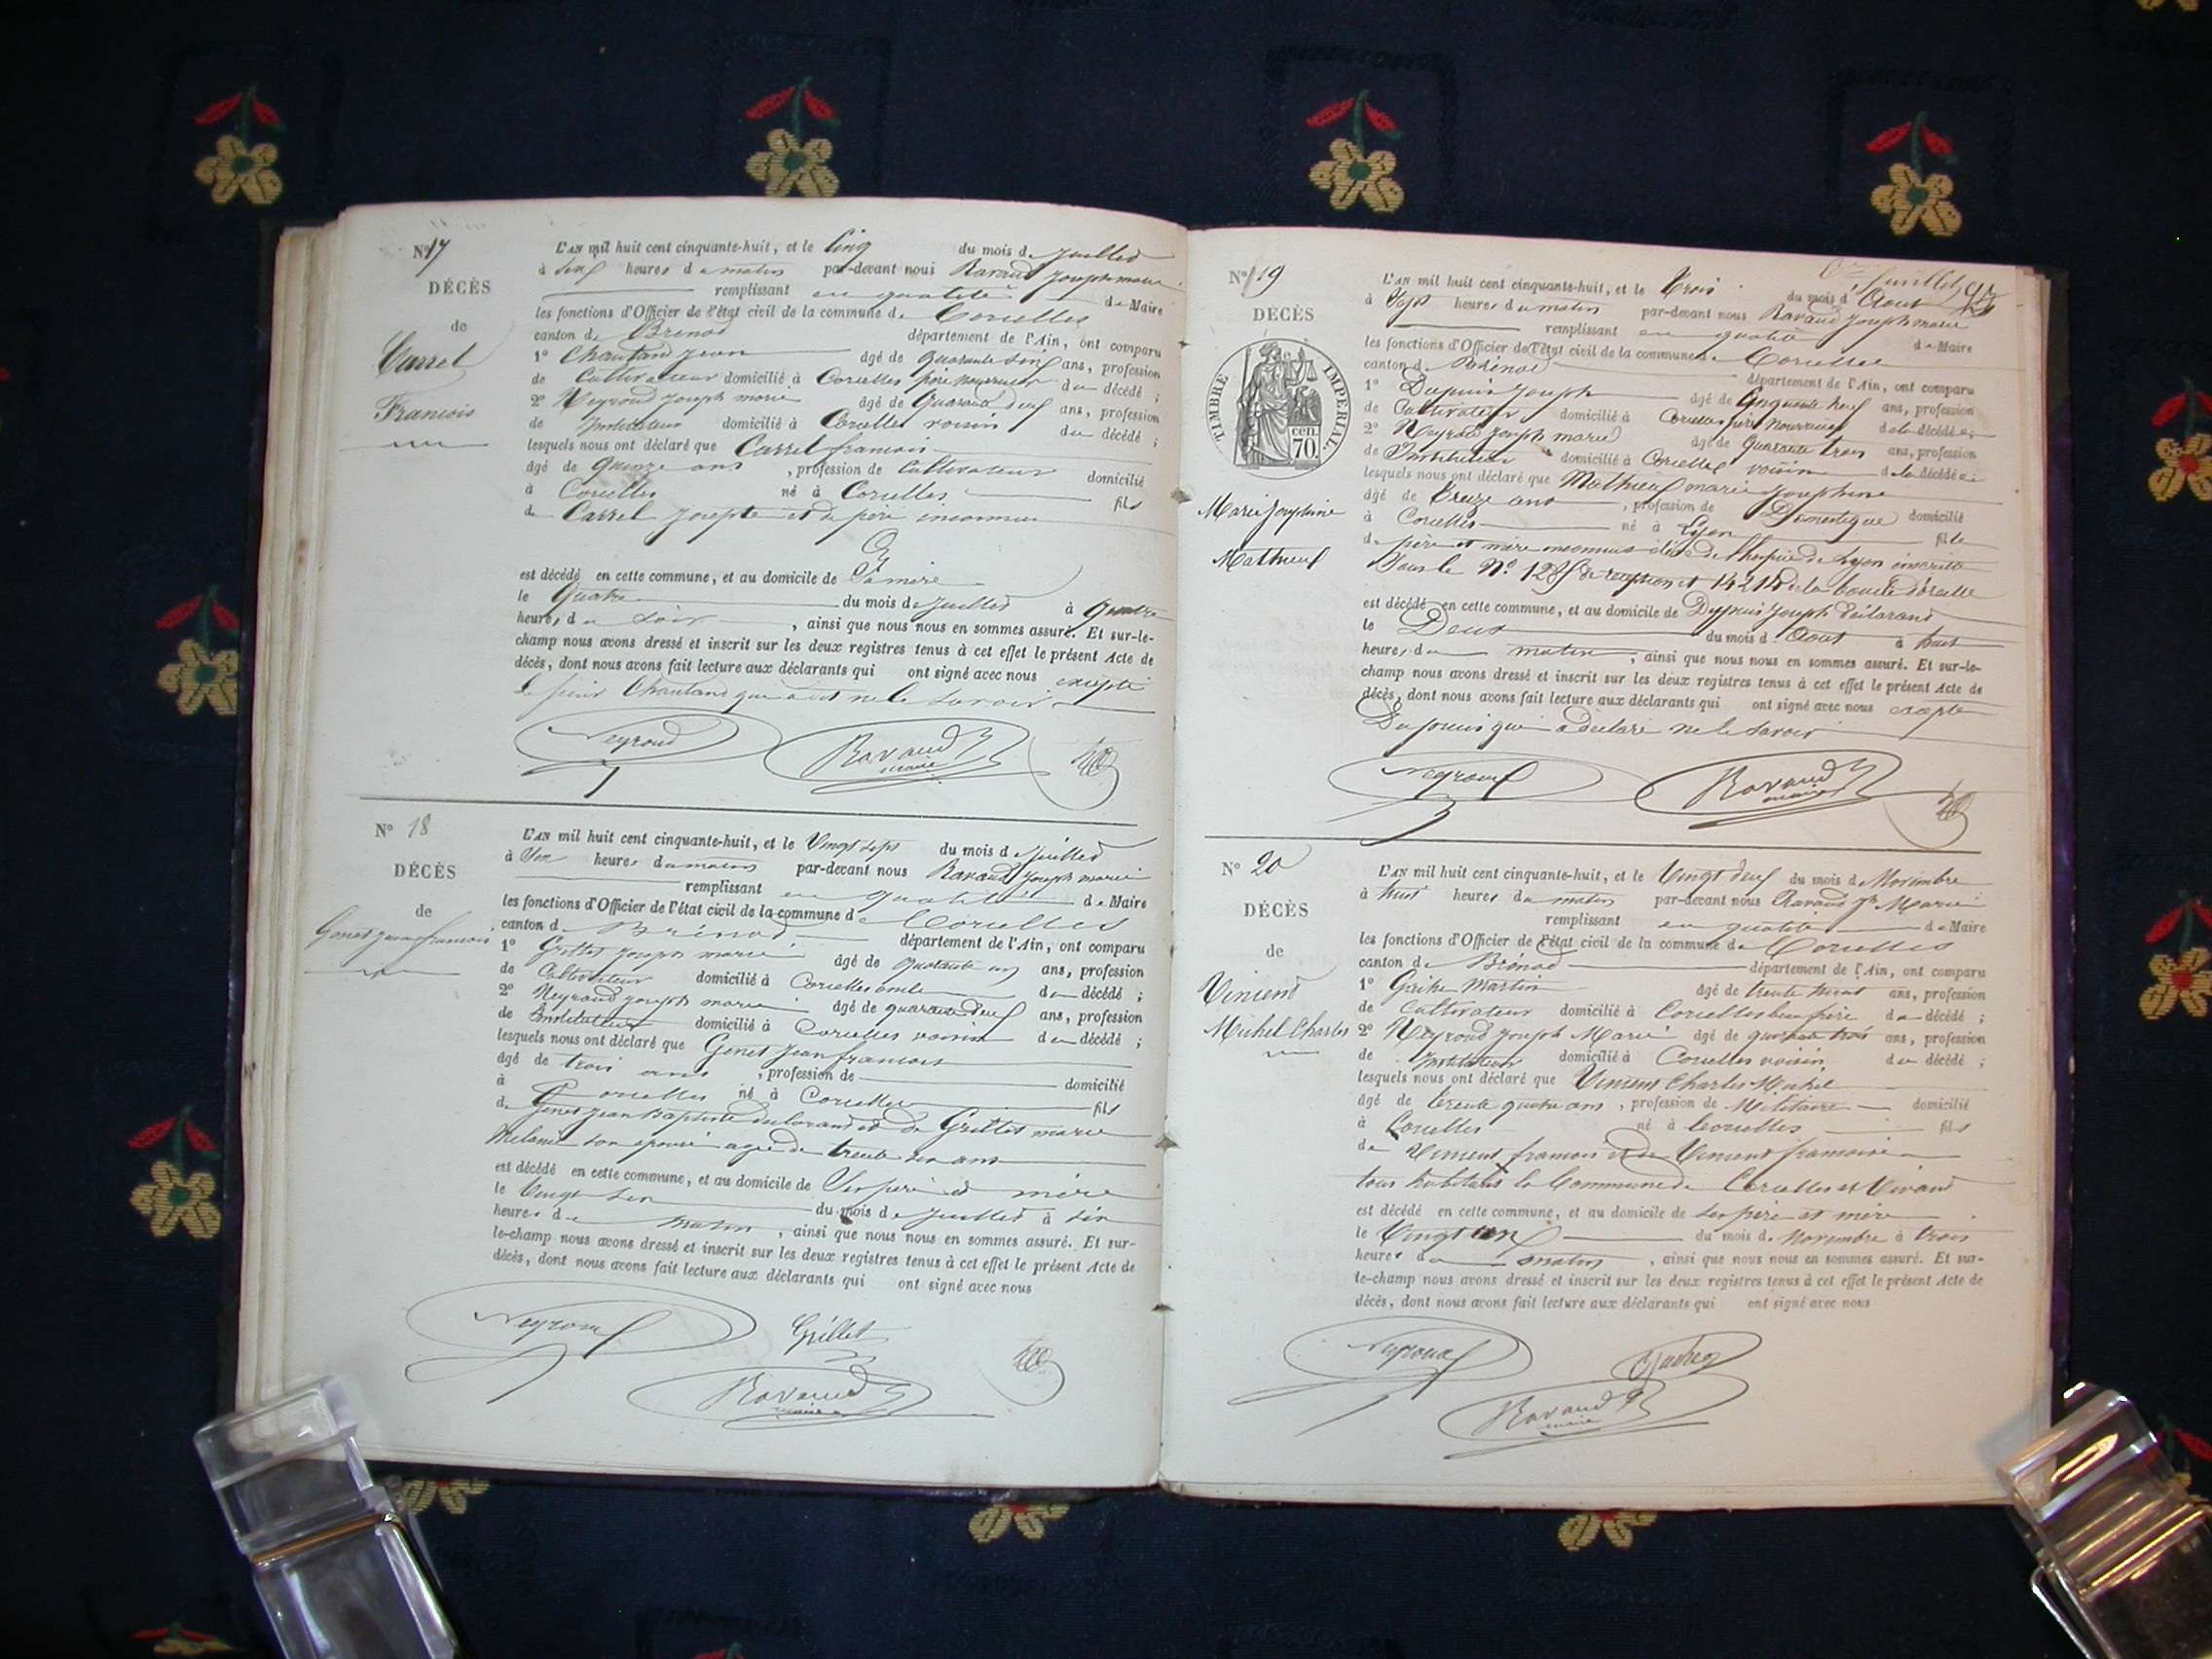 N° 17
DÉCÈS
de
Carrel
Francois
L'AN mil huit cent cinquante-huit, et le Cinq du mois de juillet
à heures du matin par-devant nous Ravaud Joseph marie
remplissant en qualité de Maire
les fonctions d'Officier de l'état civil de la commune de Corcelles
canton de Brenod département de l'Ain, ont comparu
1° Chautand Jean âgé de Quarante cinq ans, profession
de Cultivateur domicilié à Corcelles père nourricier du décédé ;
2° Neyroud Joseph marie âgé de Quarante deux ans, profession
de Instituteur domicilié à Corcelles voisin du décédé ;
lesquels nous ont déclaré que Carrel francois
âgé de quinze ans , profession de Cultivateur domicilié
à Corcelles né à Corcelles fils
de Carrel Josepte et de père inconnu
est décédé en cette commune, et au domicile de Sa mère
le Quatre du mois de juillet à quatre
heures du soir , ainsi que nous nous en sommes assuré. Et sur-le-
champ nous avons dressé et inscrit sur les deux registres tenus à cet effet le présent Acte de
décès, dont nous avons fait lecture aux déclarants qui ont signé avec nous excepté
le sieur Chautand qui a dit ne le savoir
Neyroud Ravaud
maire
N° 18
DÉCÈS
de
Genet jean francois
L'AN mil huit cent cinquante-huit, et le Vingt sept du mois de juillet
à Six heures du matin par-devant nous Ravaud Joseph marie
remplissant en qualité de Maire
les fonctions d'Officier de l'état civil de la commune de Corcelles
canton de Brénod département de l'Ain, ont comparu
1° Grillet Joseph marie âgé de quarante un ans, profession
de Cultivateur domicilié à Corcelles oncle du décédé ;
2° Neyroud Joseph marie âgé de quarante deux ans, profession
de Instituteur domicilié à Corcelles voisin du décédé ;
lesquels nous ont déclaré que Genet Jean francois
âgé de trois ans , profession de domicilié
à Corcelles né à Corcelles fils
de Genet Jean Baptiste et de Grillet marie
Melanie son épouse agée de trente six ans
est décédé en cette commune, et au domicile de Ses père et mère
le Vingt six du mois de juillet à six
heures du matin , ainsi que nous nous en sommes assuré. Et sur-
le-champ nous avons dressé et inscrit sur les deux registres tenus à cet effet le présent Acte de
décès, dont nous avons fait lecture aux déclarants qui ont signé avec nous
Neyroud Grillet
Ravaud
maire
feuillet
N° 19
DÉCÈS
TIMBRE IMPÉRIAL
cen.
70.
Marie Josephine
Mathieux
L'AN mil huit cent cinquante-huit, et le trois du mois d'Aout
à Sept heures du matin par-devant nous Ravaud Joseph marie
remplissant en qualité de Maire
les fonctions d'Officier de l'état civil de la commune de Corcelles
canton de Brénod département de l'Ain, ont comparu
1° Dupuis Joseph âgé de Cinquante neuf ans, profession
de Cultivateur domicilié à Corcelles père nourricier de la décédée ;
2° Neyroud Joseph marie âgé de Quarante trois ans, profession
de Instituteur domicilié à Corcelles voisin de la décédée ;
lesquels nous ont déclaré que Mathieux marie Josephine
âgé de treize ans , profession de Domestique domicilié
à Corcelles né à Lyon fille
de père et mère inconnus de l'hospice de Lyon inscritte
Sous le N° de reception et de la boucle d'oreille
est décédé en cette commune, et au domicile de Dupuis Joseph déclarant
le Deux du mois d'Aout à huit
heures du matin , ainsi que nous nous en sommes assuré. Et sur-le-
champ nous avons dressé et inscrit sur les deux registres tenus à cet effet le présent Acte de
décès, dont nous avons fait lecture aux déclarants qui ont signé avec nous excepté
Dupuis qui a déclaré ne le savoir
Neyroud Ravaud
maire
N° 20
DÉCÈS
de
Vincent
Michel Charles
L'AN mil huit cent cinquante-huit, et le Vingt deux du mois de Novembre
à huit heures du matin par-devant nous Ravaud Jh Marie
remplissant en qualité de Maire
les fonctions d'Officier de l'état civil de la commune de Corcelles
canton de Brénod département de l'Ain, ont comparu
1° Martin âgé de trente ans, profession
de Cultivateur domicilié à Corcelles beau père du décédé ;
2° Neyroud Joseph Marie âgé de quarante trois ans, profession
de Instituteur domicilié à Corcelles voisin du décédé ;
lesquels nous ont déclaré que Vincent Charles Michel
âgé de trente quatre ans , profession de Militaire domicilié
à Corcelles né à Corcelles fils
de Vincent francois et de Vincent francoise
tous habitans la Commune de Corcelles et Vivant
est décédé en cette commune, et au domicile de ses père et mère
le Vingt un du mois de Novembre à trois
heures du matin , ainsi que nous nous en sommes assuré. Et sur-
le-champ nous avons dressé et inscrit sur les deux registres tenus à cet effet le présent Acte de
décès, dont nous avons fait lecture aux déclarants qui ont signé avec nous
Neyroud
Ravaud
maire